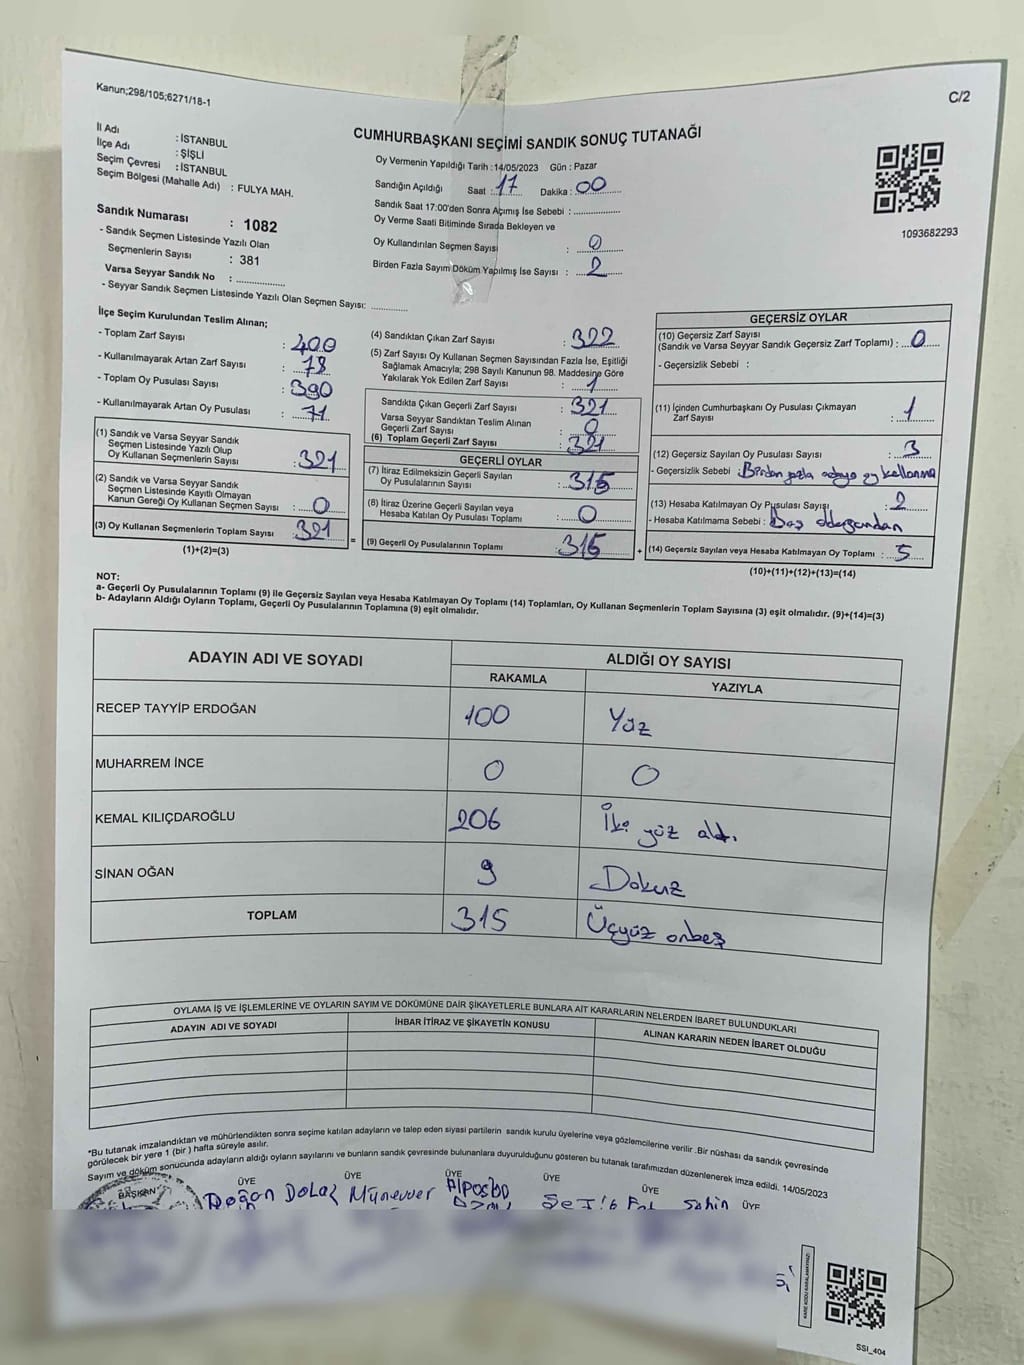 Kanun;298/105;6271/18-1
C/2
CUMHURBAŞKANI SEÇİMİ SANDIK SONUÇ TUTANAĞI
İl Adı : İSTANBUL
İlçe Adı : ŞİŞLİ
Seçim Çevresi : İSTANBUL
Seçim Bölgesi (Mahalle Adı) : FULYA MAH.
Sandık Numarası : 1082
- Sandık Seçmen Listesinde Yazılı Olan
Seçmenlerin Sayısı : 381
Varsa Seyyar Sandık No :
- Seyyar Sandık Seçmen Listesinde Yazılı Olan Seçmen Sayısı:
Oy Vermenin Yapıldığı Tarih : 14/05/2023 Gün : Pazar
Sandığın Açıldığı Saat : 17 Dakika : 00
Sandık Saat 17:00'den Sonra Açımış İse Sebebi :
Oy Verme Saati Bitiminde Sırada Bekleyen ve
Oy Kullandırılan Seçmen Sayısı : 0
Birden Fazla Sayım Döküm Yapılmış İse Sayısı : 2
1093682293
İlçe Seçim Kurulundan Teslim Alınan;
- Toplam Zarf Sayısı : 400
- Kullanılmayarak Artan Zarf Sayısı : 78
- Toplam Oy Pusulası Sayısı : 390
- Kullanılmayarak Artan Oy Pusulası : 71
(1) Sandık ve Varsa Seyyar Sandık
Seçmen Listesinde Yazılı Olup
Oy Kullanan Seçmenlerin Sayısı : 321
(2) Sandık ve Varsa Seyyar Sandık
Seçmen Listesinde Kayıtlı Olmayan
Kanun Gereği Oy Kullanan Seçmen Sayısı : 0
(3) Oy Kullanan Seçmenlerin Toplam Sayısı : 321
(1)+(2)=(3)
(4) Sandıktan Çıkan Zarf Sayısı : 322
(5) Zarf Sayısı Oy Kullanan Seçmen Sayısından Fazla İse, Eşitliği
Sağlamak Amacıyla; 298 Sayılı Kanunun 98. Maddesine Göre
Yakılarak Yok Edilen Zarf Sayısı : 1
Sandıkta Çıkan Geçerli Zarf Sayısı : 321
Varsa Seyyar Sandıktan Teslim Alınan
Geçerli Zarf Sayısı : 0
(6) Toplam Geçerli Zarf Sayısı : 321
GEÇERLİ OYLAR
(7) İtiraz Edilmeksizin Geçerli Sayılan
Oy Pusulalarının Sayısı : 315
(8) İtiraz Üzerine Geçerli Sayılan veya
Hesaba Katılan Oy Pusulası Toplamı : 0
(9) Geçerli Oy Pusulalarının Toplamı : 315
=
+
GEÇERSİZ OYLAR
(10) Geçersiz Zarf Sayısı
(Sandık ve Varsa Seyyar Sandık Geçersiz Zarf Toplamı) : 0
- Geçersizlik Sebebi :
(11) İçinden Cumhurbaşkanı Oy Pusulası Çıkmayan
Zarf Sayısı : 1
(12) Geçersiz Sayılan Oy Pusulası Sayısı : 3
- Geçersizlik Sebebi : Birden fazla adaya oy kullanma
(13) Hesaba Katılmayan Oy Pusulası Sayısı : 2
- Hesaba Katılmama Sebebi : Boş olduğundan
(14) Geçersiz Sayılan veya Hesaba Katılmayan Oy Toplamı : 5
(10)+(11)+(12)+(13)=(14)
NOT:
a- Geçerli Oy Pusulalarının Toplamı (9) ile Geçersiz Sayılan veya Hesaba Katılmayan Oy Toplamı (14) Toplamları, Oy Kullanan Seçmenlerin Toplam Sayısına (3) eşit olmalıdır. (9)+(14)=(3)
b- Adayların Aldığı Oyların Toplamı, Geçerli Oy Pusulalarının Toplamına (9) eşit olmalıdır.
ADAYIN ADI VE SOYADI
ALDIĞI OY SAYISI
RAKAMLA YAZIYLA
RECEP TAYYİP ERDOĞAN 100 Yüz
MUHARREM İNCE 0 0
KEMAL KILIÇDAROĞLU 206 İki yüz altı
SİNAN OĞAN 9 Dokuz
TOPLAM 315 Üçyüz onbeş
OYLAMA İŞ VE İŞLEMLERİNE VE OYLARIN SAYIM VE DÖKÜMÜNE DAİR ŞİKAYETLERLE BUNLARA AİT KARARLARIN NELERDEN İBARET BULUNDUKLARI
ADAYIN ADI VE SOYADI İHBAR İTİRAZ VE ŞİKAYETİN KONUSU ALINAN KARARIN NEDEN İBARET OLDUĞU
*Bu tutanak imzalandıktan ve mühürlendikten sonra seçime katılan adayların ve talep eden siyasi partilerin sandık kurulu üyelerine veya gözlemcilerine verilir .Bir nüshası da sandık çevresinde
görülecek bir yere 1 (bir) hafta süreyle asılır.
Sayım ve döküm sonucunda adayların aldığı oyların sayılarını ve bunların sandık çevresinde bulunanlara duyurulduğunu gösteren bu tutanak tarafımızdan düzenlenerek imza edildi. 14/05/2023
BAŞKAN ÜYE ÜYE ÜYE ÜYE ÜYE ÜYE
Doğan Münevver Şahin
SSI_404